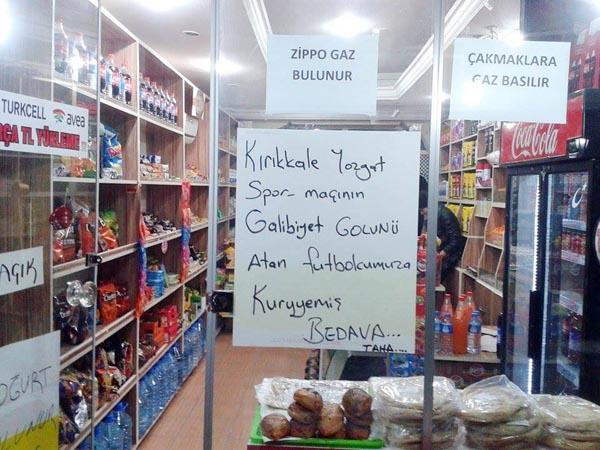 ZİPPO GAZ
BULUNUR
ÇAKMAKLARA
GAZ BASILIR
TURKCELL
avea
TL YÜKLEME
Coca-Cola
Kırıkkale Yozgat
Spor maçının
Galibiyet GOLUNÜ
Atan futbolcumuza
Kuruyemiş
BEDAVA...
TAHA....
AÇIK
YOĞURT
BULUNUR